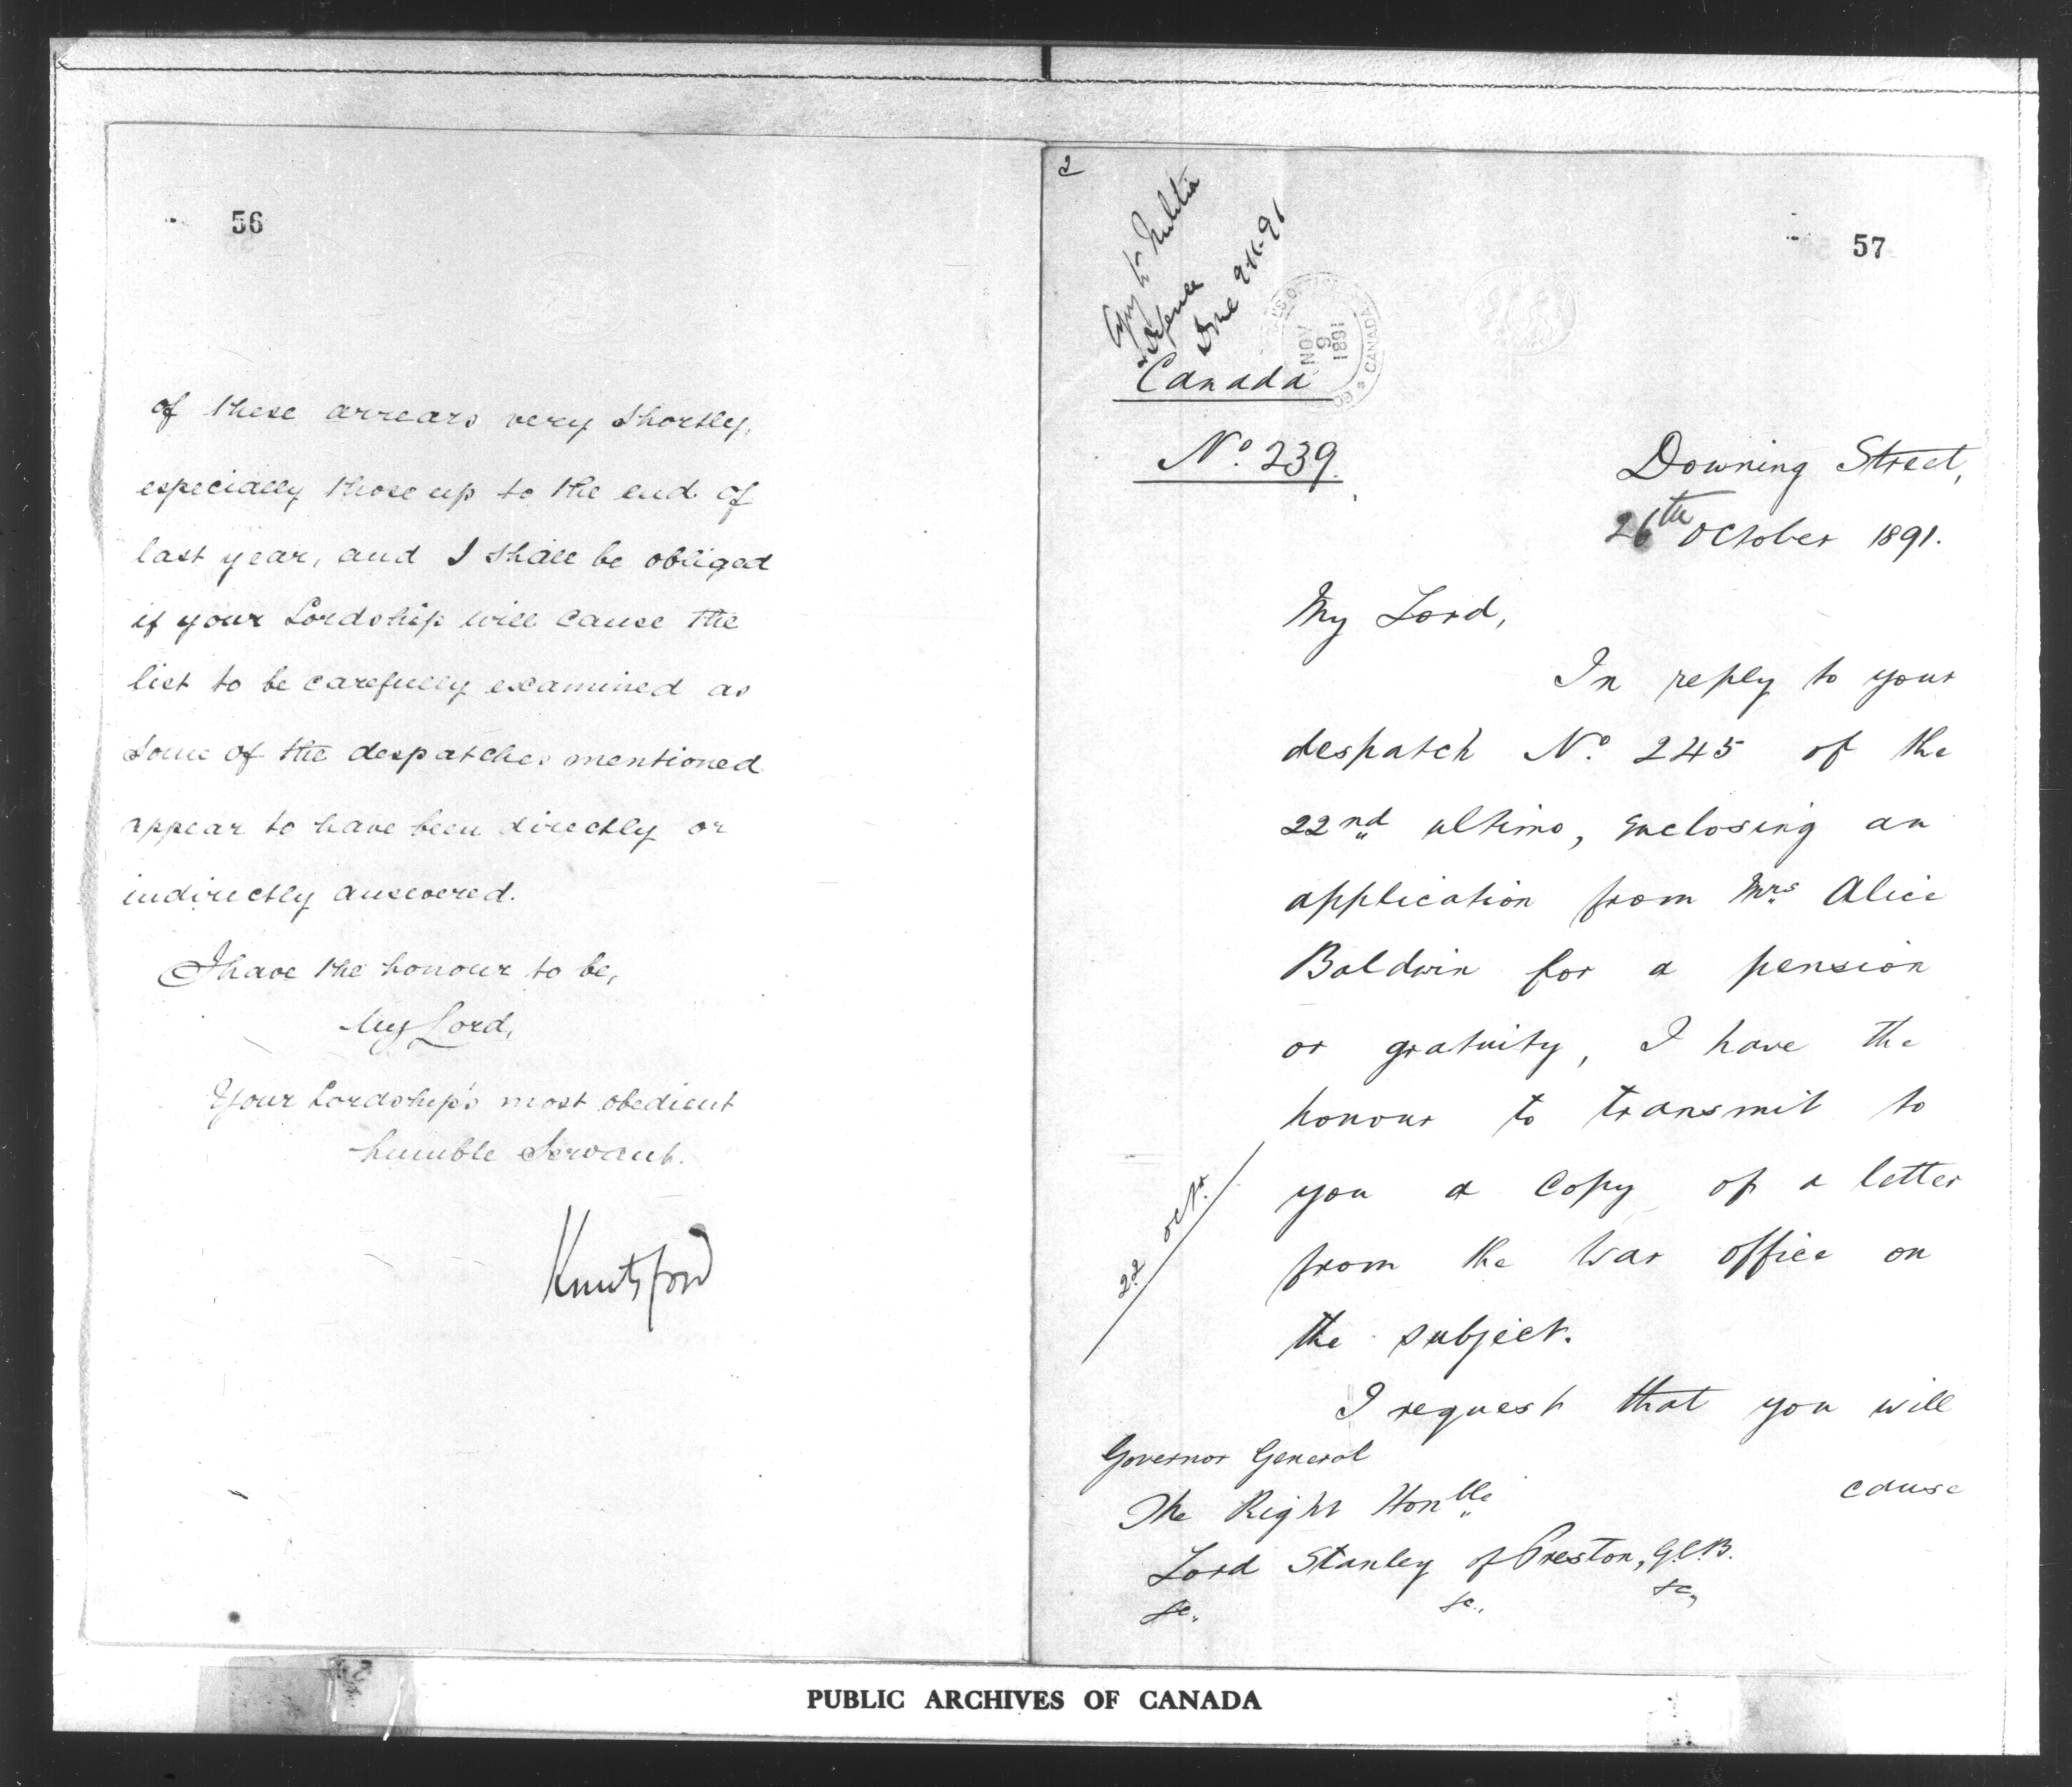 56
of these arrears very shortly,
especially those up to the end of
last year, and I shall be obliged
if your Lordship will cause the
list to be carefully examined as
some of the despatches mentioned
appear to have been directly or
indirectly answered.
I have the honour to be,
My Lord,
Your Lordship's most obedient
humble Servant.
Knutsford
2
57
Copy to Militia
& Defence
Done 9-11-91
NOV
9
1891
CANADA
Canada
No. 239.
Downing Street,
26th October 1891.
My Lord,
In reply to your
despatch No. 245 of the
22nd ultimo, enclosing an
application from Mrs Alice
Baldwin for a pension
or gratuity, I have the
honour to transmit to
you a copy of a letter
22 Octr.
from the War Office on
the subject.
I request that you will
cause
Governor General
The Right Honble
Lord Stanley of Preston, G.C.B.
&c. &c., &c,
PUBLIC ARCHIVES OF CANADA